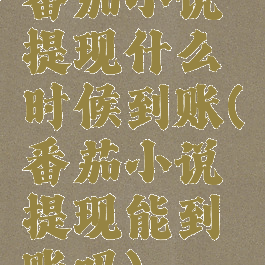 番茄小说
提现什么
时候到账(
番茄小说
提现能到
账吗)